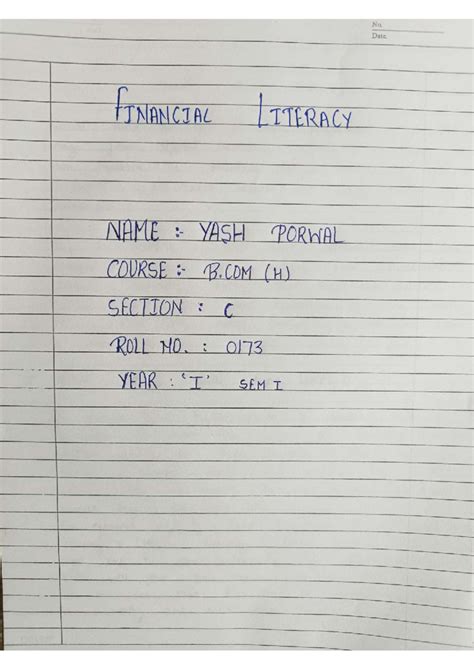 No.
Date
FINANCIAL LITERACY
NAME :- YASH PORWAL
COURSE :- B.COM (H)
SECTION : C
ROLL NO. : 0173
YEAR : 'I' SEM I